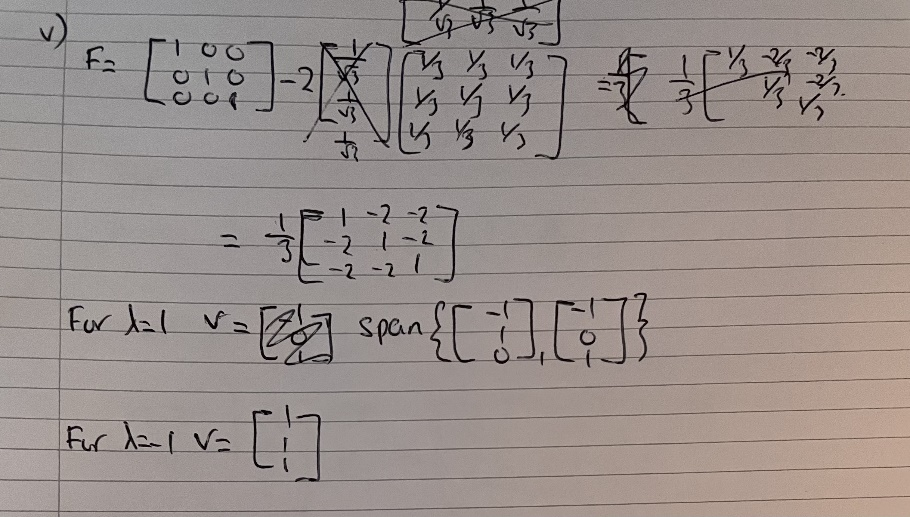 [1/√3 1/√3 1/√3]
v)
F= [1 0 0; 0 1 0; 0 0 1] -2 [1/√3; 1/√3; 1/√3] [1/3 1/3 1/3; 1/3 1/3 1/3; 1/3 1/3 1/3] = 1/3 [1/3 -2/3 -2/3; 1/3 -2/3; 1/3]
= 1/3 [1 -2 -2; -2 1 -2; -2 -2 1]
For λ=1 v= span{[-1; 1; 0], [-1; 0; 1]}
For λ=-1 v= [1; 1; 1]